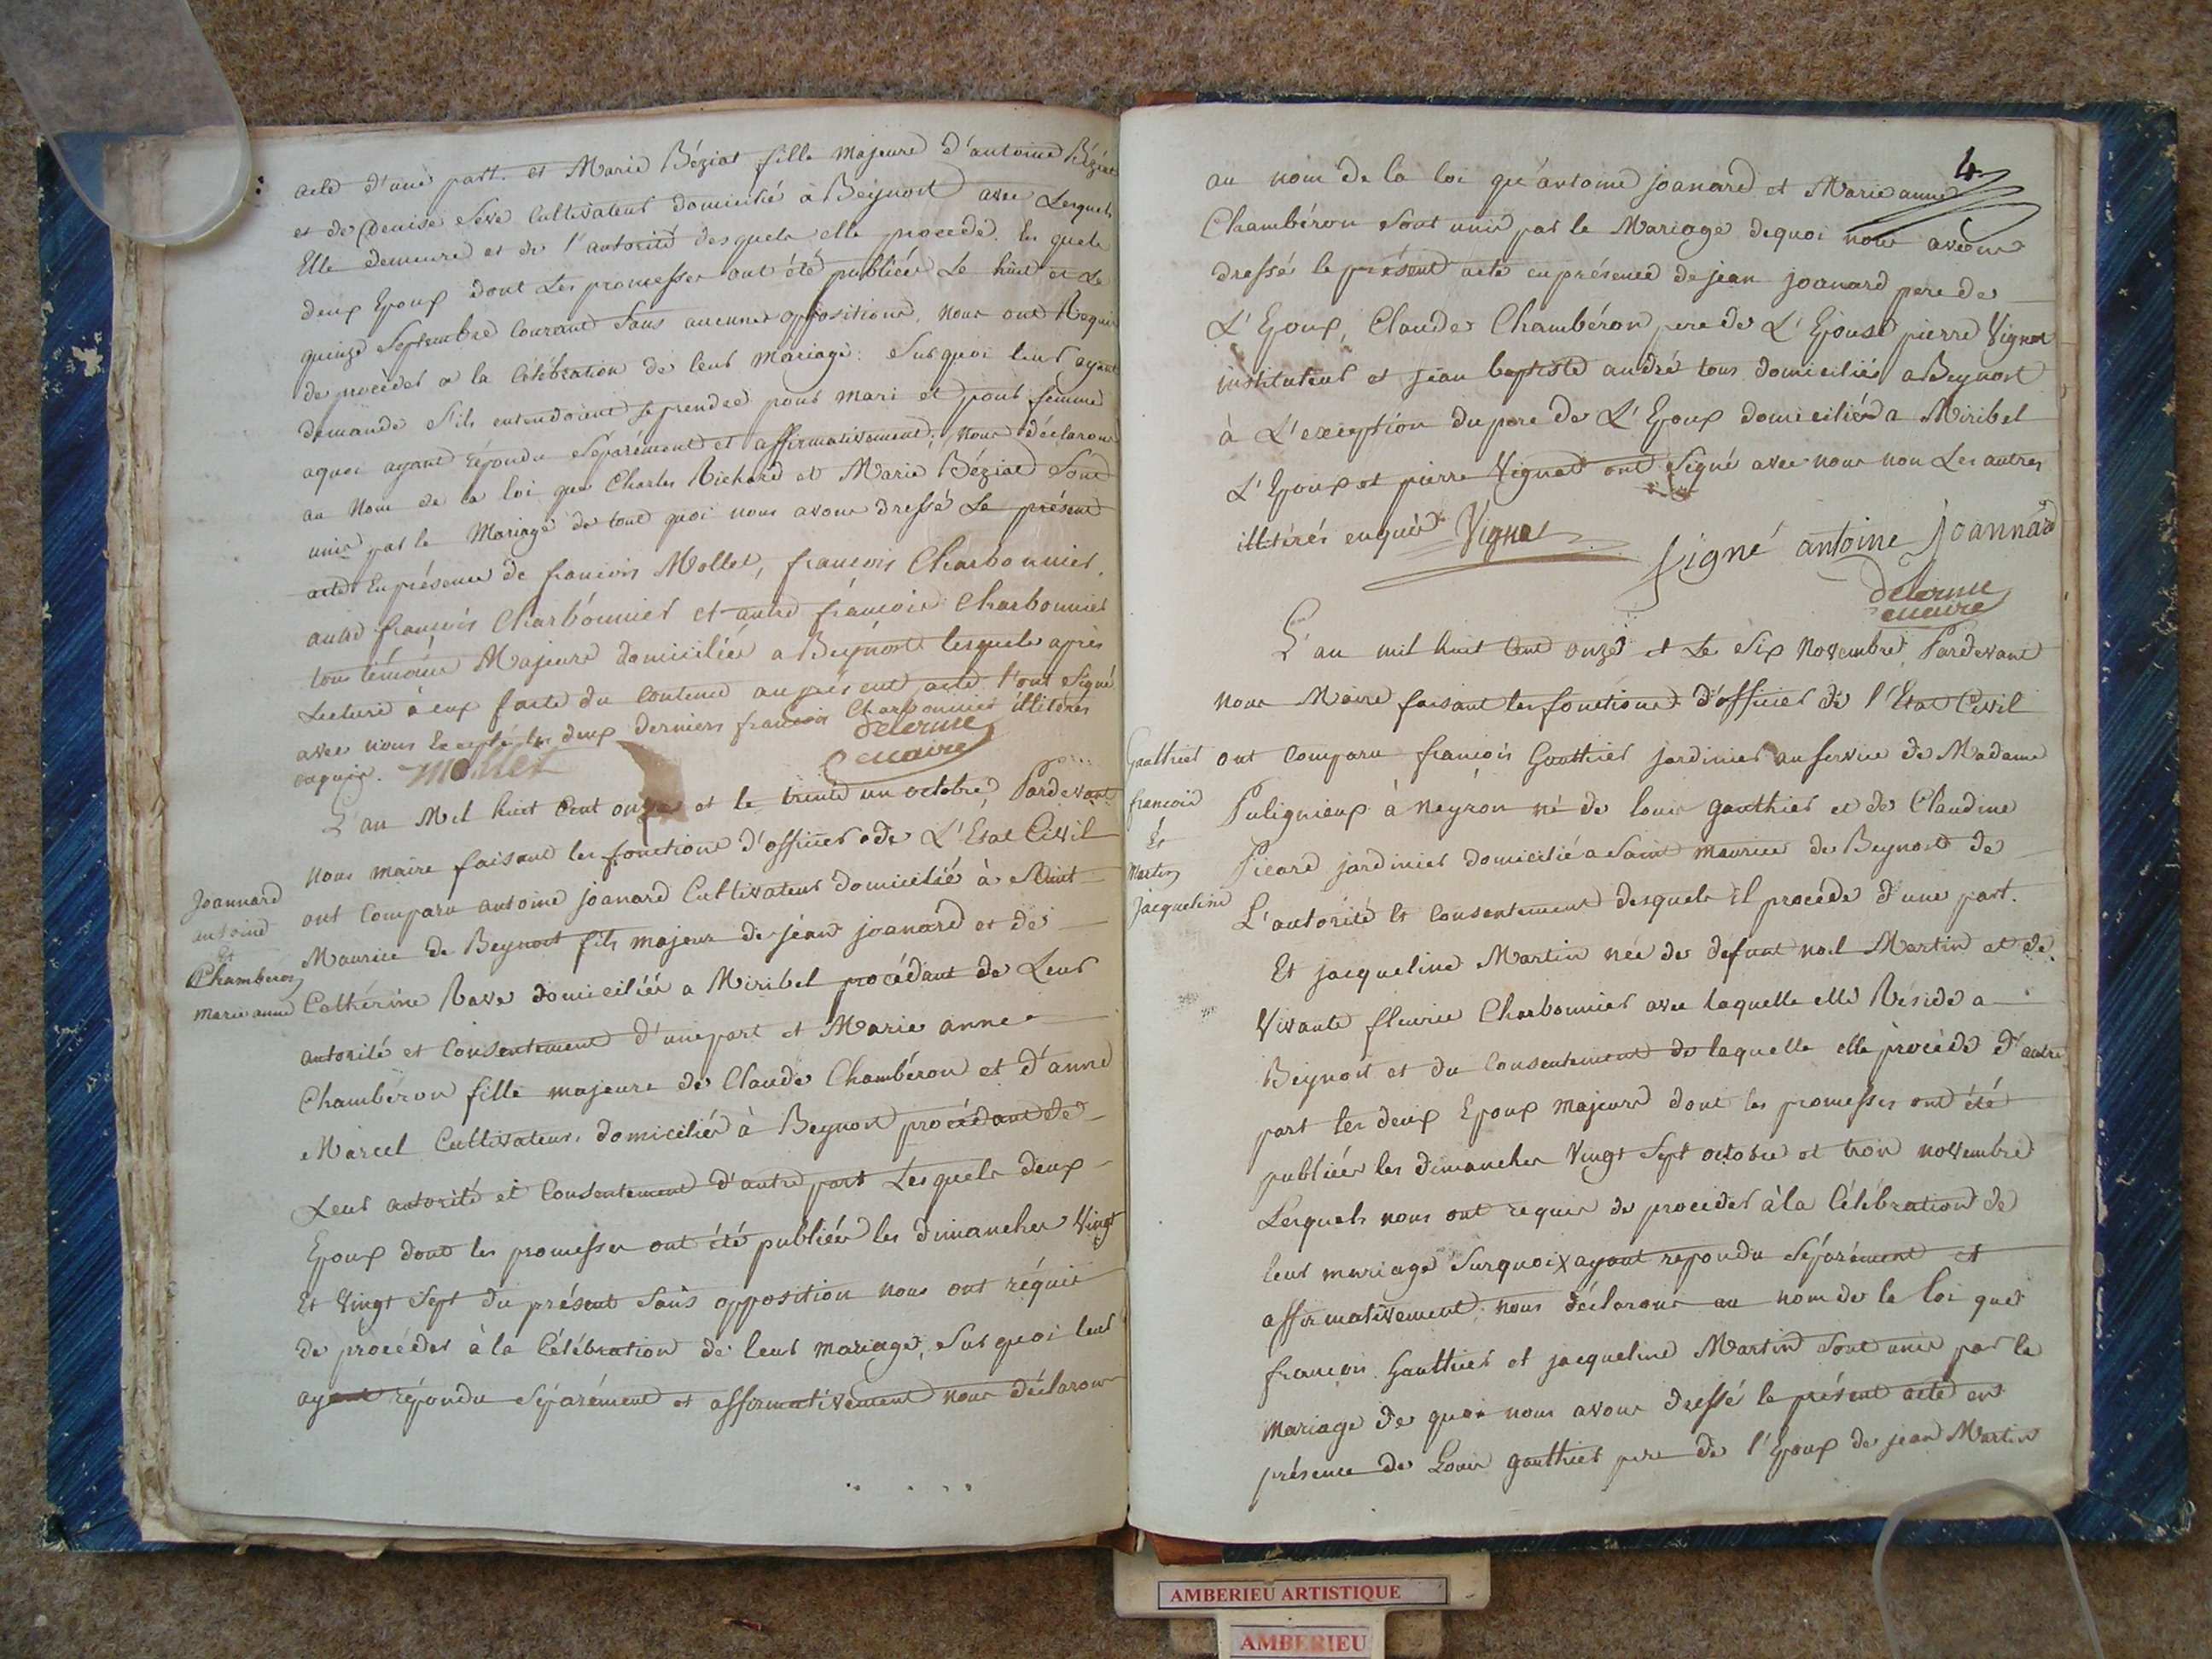 acte d'une part. et Marie Béziat fille Majeure d'antoine Béziat
et de Denise Seve Cultivateur domicilié à Beynost avec Lesquels
Elle demeure et de l'autorité desquels elle procede. les quels
deux Epoux dont Les promesses ont été publiées Le huit et Le
quinze Septembre Courant Sans aucunes oppositions, nous ont Requis
de procéder a la Célébration de leur Mariage. Sur quoi leur ayant
demandé S'ils entendoient se prendre pour mari et pour femme
aquoi ayant répondu Séparément et affirmativement; Nous déclarons
au Nom de la loi que Charles Richard et Marie Béziat Sont
unis par le Mariage de tout quoi nous avons dressé Le présent
acte En présence de francois Mollet, francois Charbonnier,
autre françois Charbonnier et autre françois Charbonnier
tous témoins Majeurs domiciliés a Beynost lesquels après
Lecture à eux faite du Contenu au présent acte l'ont Signé
avec nous Excepté les deux derniers francois Charbonnier illitérés
enquis. Mollet
delorme
maire
L'an Mil huit Cent onze et le trente un octobre, Pardevant
nous maire faisant les fonctions d'officier de L'Etat Civil
Joannard
antoine
Et
Chambéron
marie anne
ont Comparu antoine joanard Cultivateur domicilié à Saint
Maurice de Beynost fils majeur de jean joanard et de
Cathérine Rave domiciliés a Miribel procédant de Leur
autorité et Consentement d'une part et Marie anne
Chambéron fille majeure de Claude Chambéron et d'anne
Marcel Cultivateurs domiciliés à Beynost procédant de
Leur autorité et Consentement d'autre part Lesquels deux
Epoux dont les promesses ont été publiées les dimanches Vingt
Et Vingt Sept du présent Sans opposition nous ont réquis
de procéder à la Célébration de leur mariage, Sur quoi leur
ayant répondu Séparément et affirmativement nous déclarons
4
au nom de la loi qu'antoine joanard et Marie anne
Chambéron Sont unis par le Mariage dequoi nous avons
dressé le présent acte en présence de jean joanard pere de
L'Epoux, Claude Chambéron pere de L'Epouse pierre Vignat
instituteur et jean baptiste andré tous domiciliés a Beynost
à L'exception du pere de L'Epoux domicilié a Miribel
L'Epoux et pierre Vignat ont Signé avec nous non Les autres
illitérés enquis Vignat
signé antoine joannad
delorme
maire
L'an mil huit Cent onze et Le Six Novembre, Pardevant
nous Maire faisant les fonctions d'officier de l'Etat Civil
Gauthier
francois
Et
Martin
jacqueline
ont Comparu françois Gauthier jardinier au service de Madame
Pulignieux à Neyron né de louis gauthier et de Claudine
Picard jardinier domicilié a Saint maurice de Beynost de
L'autorité et Consentement desquels il procéde d'une part.
Et jacqueline Martin née de défunt noel Martin et de
Vivante fleurie Charbonnier avec laquelle elle Réside a
Beynost et du Consentement de laquelle elle procéde d'autre
part les deux Epoux Majeurs dont les promesses ont été
publiées les dimanches Vingt Sept octobre et trois novembre
Lesquels nous ont requis de proceder à la Célébration de
leur mariage Surquoi X ayant repondu Séparément et
affirmativement, nous déclarons au nom de la loi que
françois Gauthier et jacqueline Martin Sont unis par le
Mariage de quoi nous avons dressé le présent acte en
présence de Louis gauthier pere de l'Epoux de jean Martin
AMBERIEU ARTISTIQUE
AMBERIEU